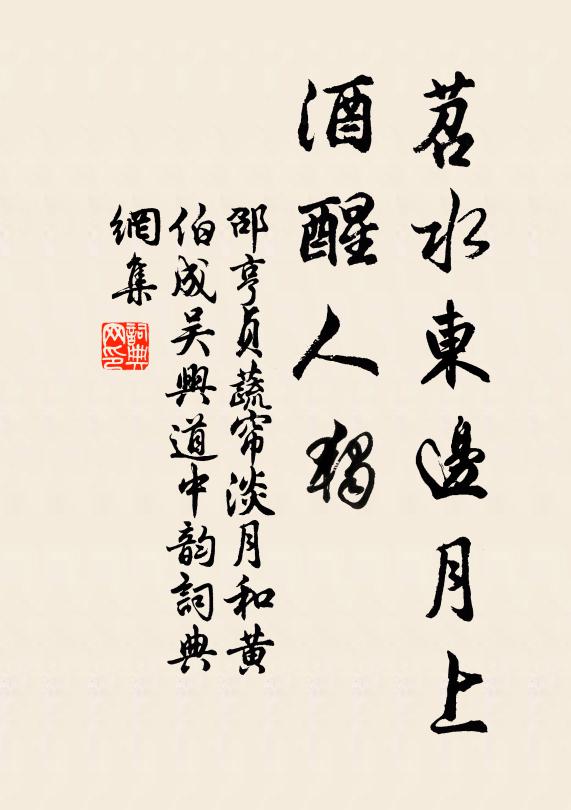 苕水東邊月上
酒醒人獨
邵亨貞蔬帘淡月和黃
伯成吴興道中韵詞典
網集
詞典网印